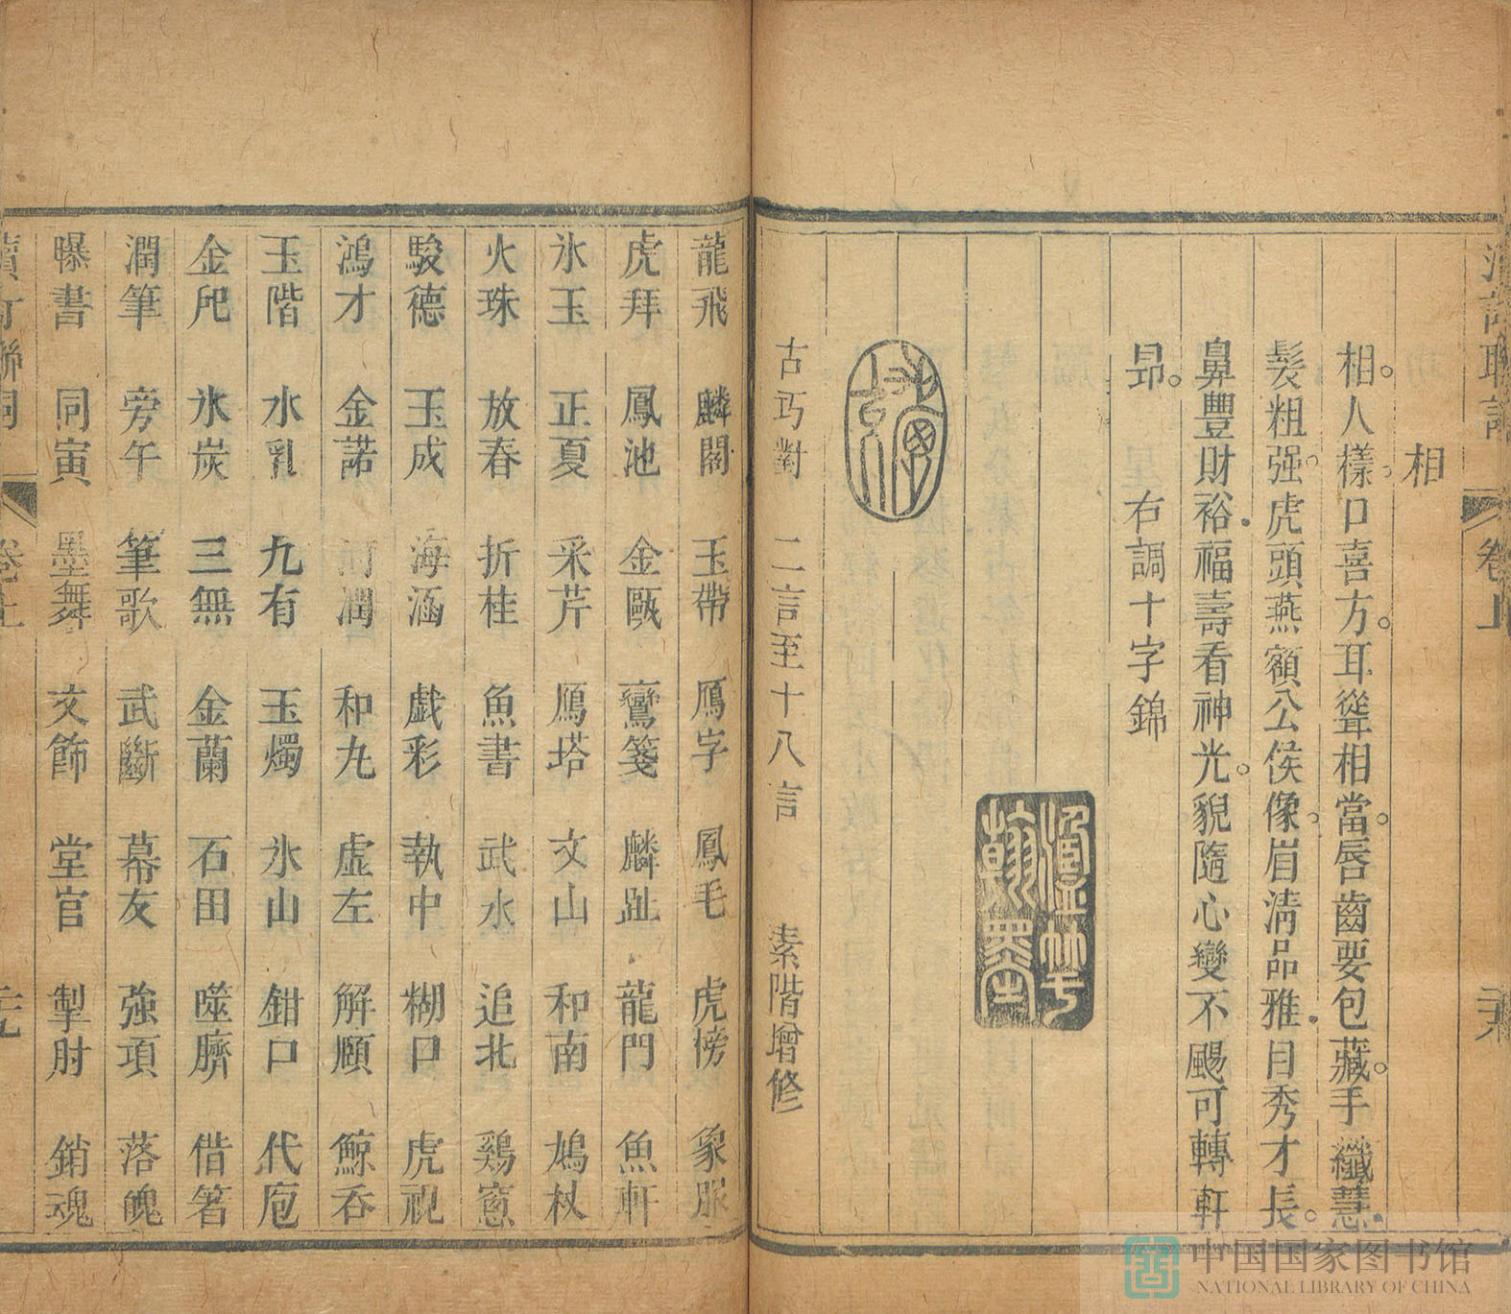 相
相人樣口喜方耳聳相當唇齒要包藏手纖慧
髮粗强虎頭燕額公侯像眉清品雅目秀才長
鼻豐財裕福壽看神光貌隨心變不颺可轉軒
昂 右調十字錦
古巧對 二言至十八言 素階增修
龍飛 麟閣 玉帶 鴈字 鳳毛 虎榜 象服
虎拜 鳳池 金甌 鸞箋 麟趾 龍門 魚軒
氷玉 正夏 采芹 鴈塔 文山 和南 鳩杖
火珠 放春 折桂 魚書 武水 追北 鷄窓
駿德 玉成 海涵 戯彩 執中 糊口 虎視
鴻才 金諾 河潤 和丸 虛左 解頤 鯨吞
玉階 水乳 九有 玉燭 氷山 鉗口 代庖
金戺 氷炭 三無 金蘭 石田 噬臍 借箸
潤筆 旁午 筆歌 武斷 幕友 強項 落魄
曝書 同寅 墨舞 文飾 堂官 掣肘 銷魂
卷上
中国国家图书馆
NATIONAL LIBRARY OF CHINA